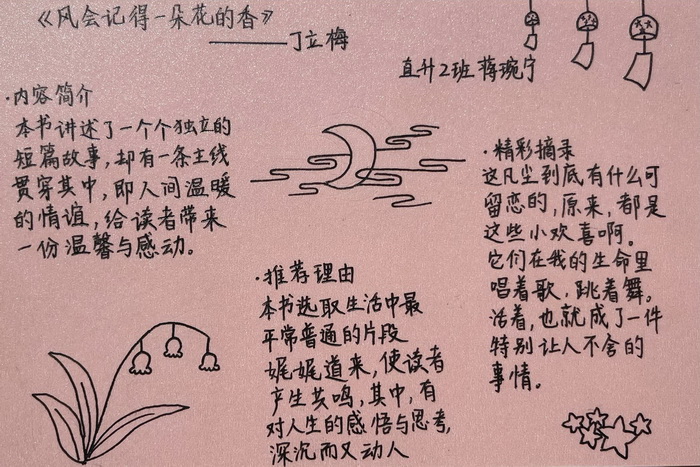 《风会记得一朵花的香》
——丁立梅
直升2班 蒋琬宁
·内容简介
本书讲述了一个个独立的
短篇故事，却有一条主线
贯穿其中，即人间温暖
的情谊，给读者带来
一份温馨与感动。
·推荐理由
本书选取生活中最
平常普通的片段
娓娓道来，使读者
产生共鸣，其中，有
对人生的感悟与思考，
深沉而又动人
·精彩摘录
这凡尘到底有什么可
留恋的，原来，都是
这些小欢喜啊。
它们在我的生命里
唱着歌，跳着舞。
活着，也就成了一件
特别让人不舍的
事情。